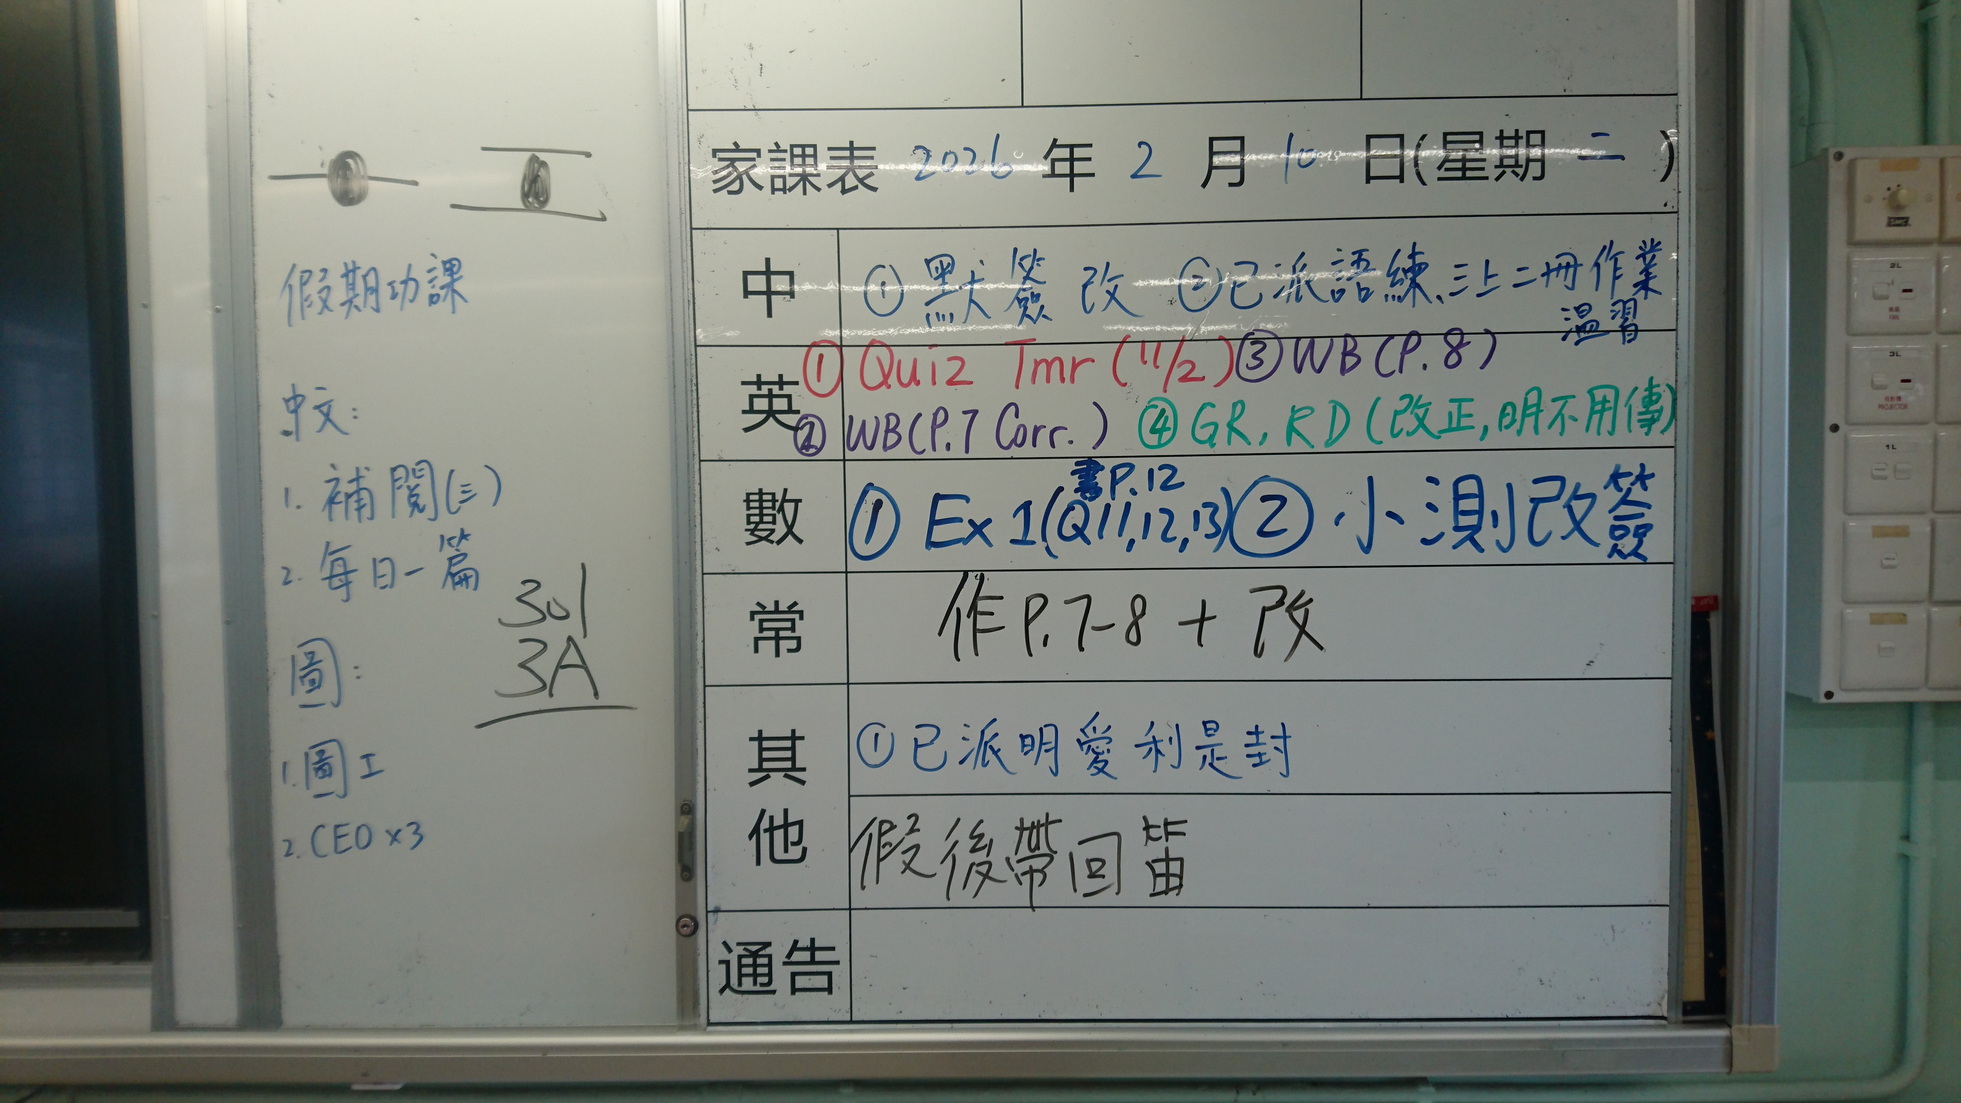 假期功課
中文:
1. 補閱(三)
2. 每日一篇
301
3A
圖:
1. 圖工
2. CEO x3
家課表 2026 年 2 月 10 日(星期 二 )
中 ① 默簽改 ②已派語練、三上二冊作業
溫習
英 ① Quiz Tmr (11/2) ③ WB (P.8)
② WB (P.7 Corr.) ④ GR, RD (改正,明不用傳)
書P.12
數 ① Ex 1(Q11,12,13) ② 小測改簽
常 作P.7-8 + 改
其他 ①已派明愛利是封
假後帶回笛
通告